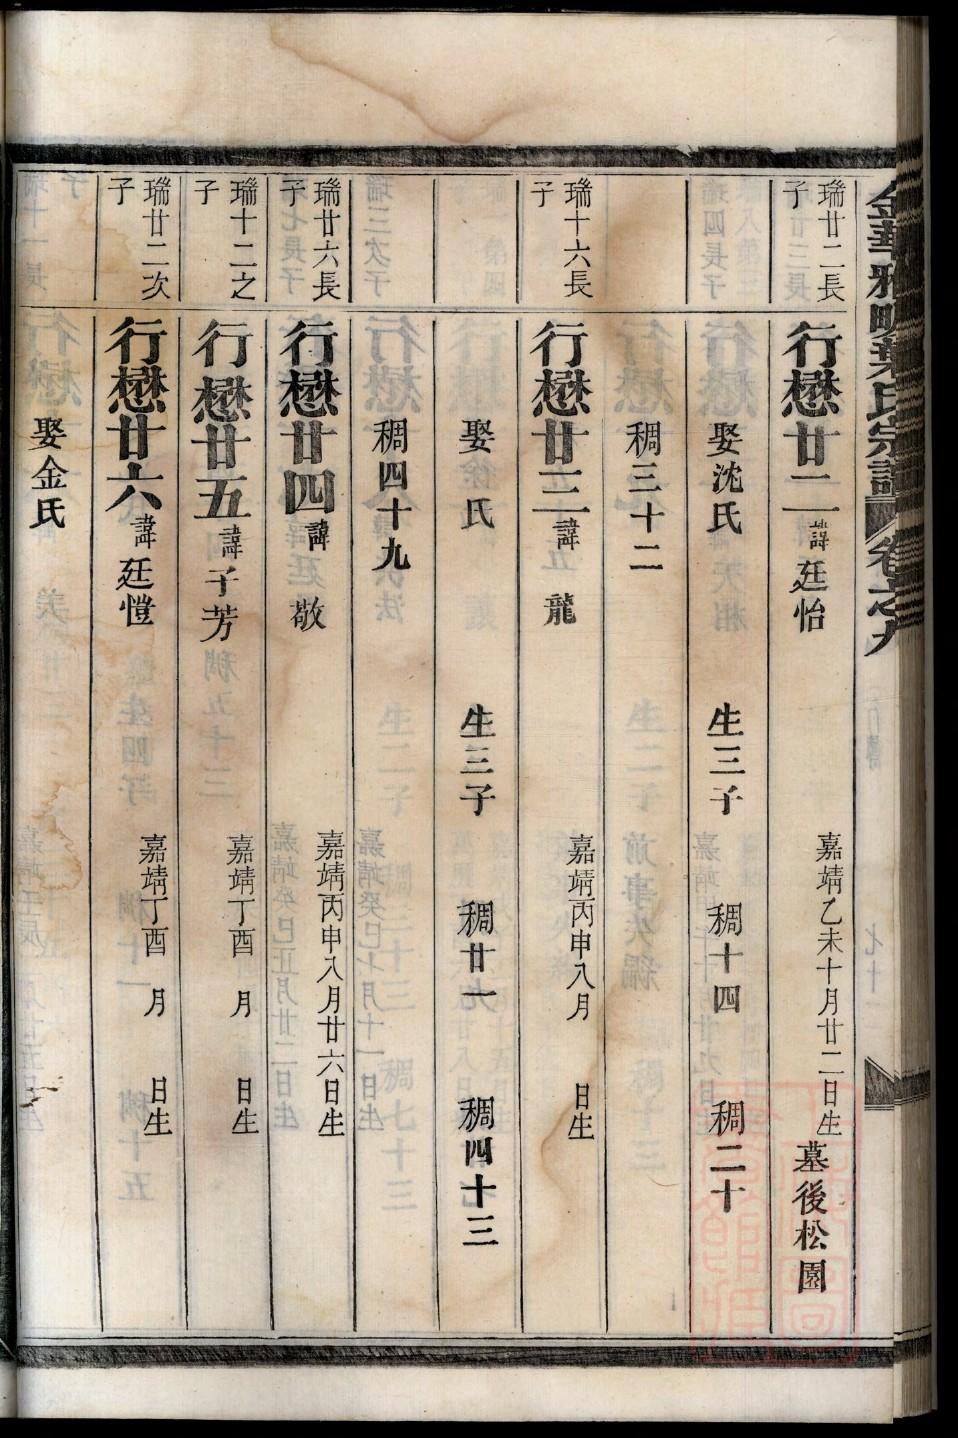 金華雅畈葉氏宗譜 卷之九
瑞廿二長子
行懋廿二 諱廷怡 嘉靖乙未十月廿二日生 墓後松園
娶沈氏 生三子 稠十四 稠二十
稠三十二
瑞十六長子
行懋廿三 諱龍 嘉靖丙申八月 日生
娶徐氏 生三子 稠廿一 稠四十三
稠四十九
瑞廿六長子
行懋廿四 諱敬 嘉靖丙申八月廿六日生
瑞十二之子
行懋廿五 諱子芳 嘉靖丁酉 月 日生
瑞廿二次子
行懋廿六 諱廷愷 嘉靖丁酉 月 日生
娶金氏